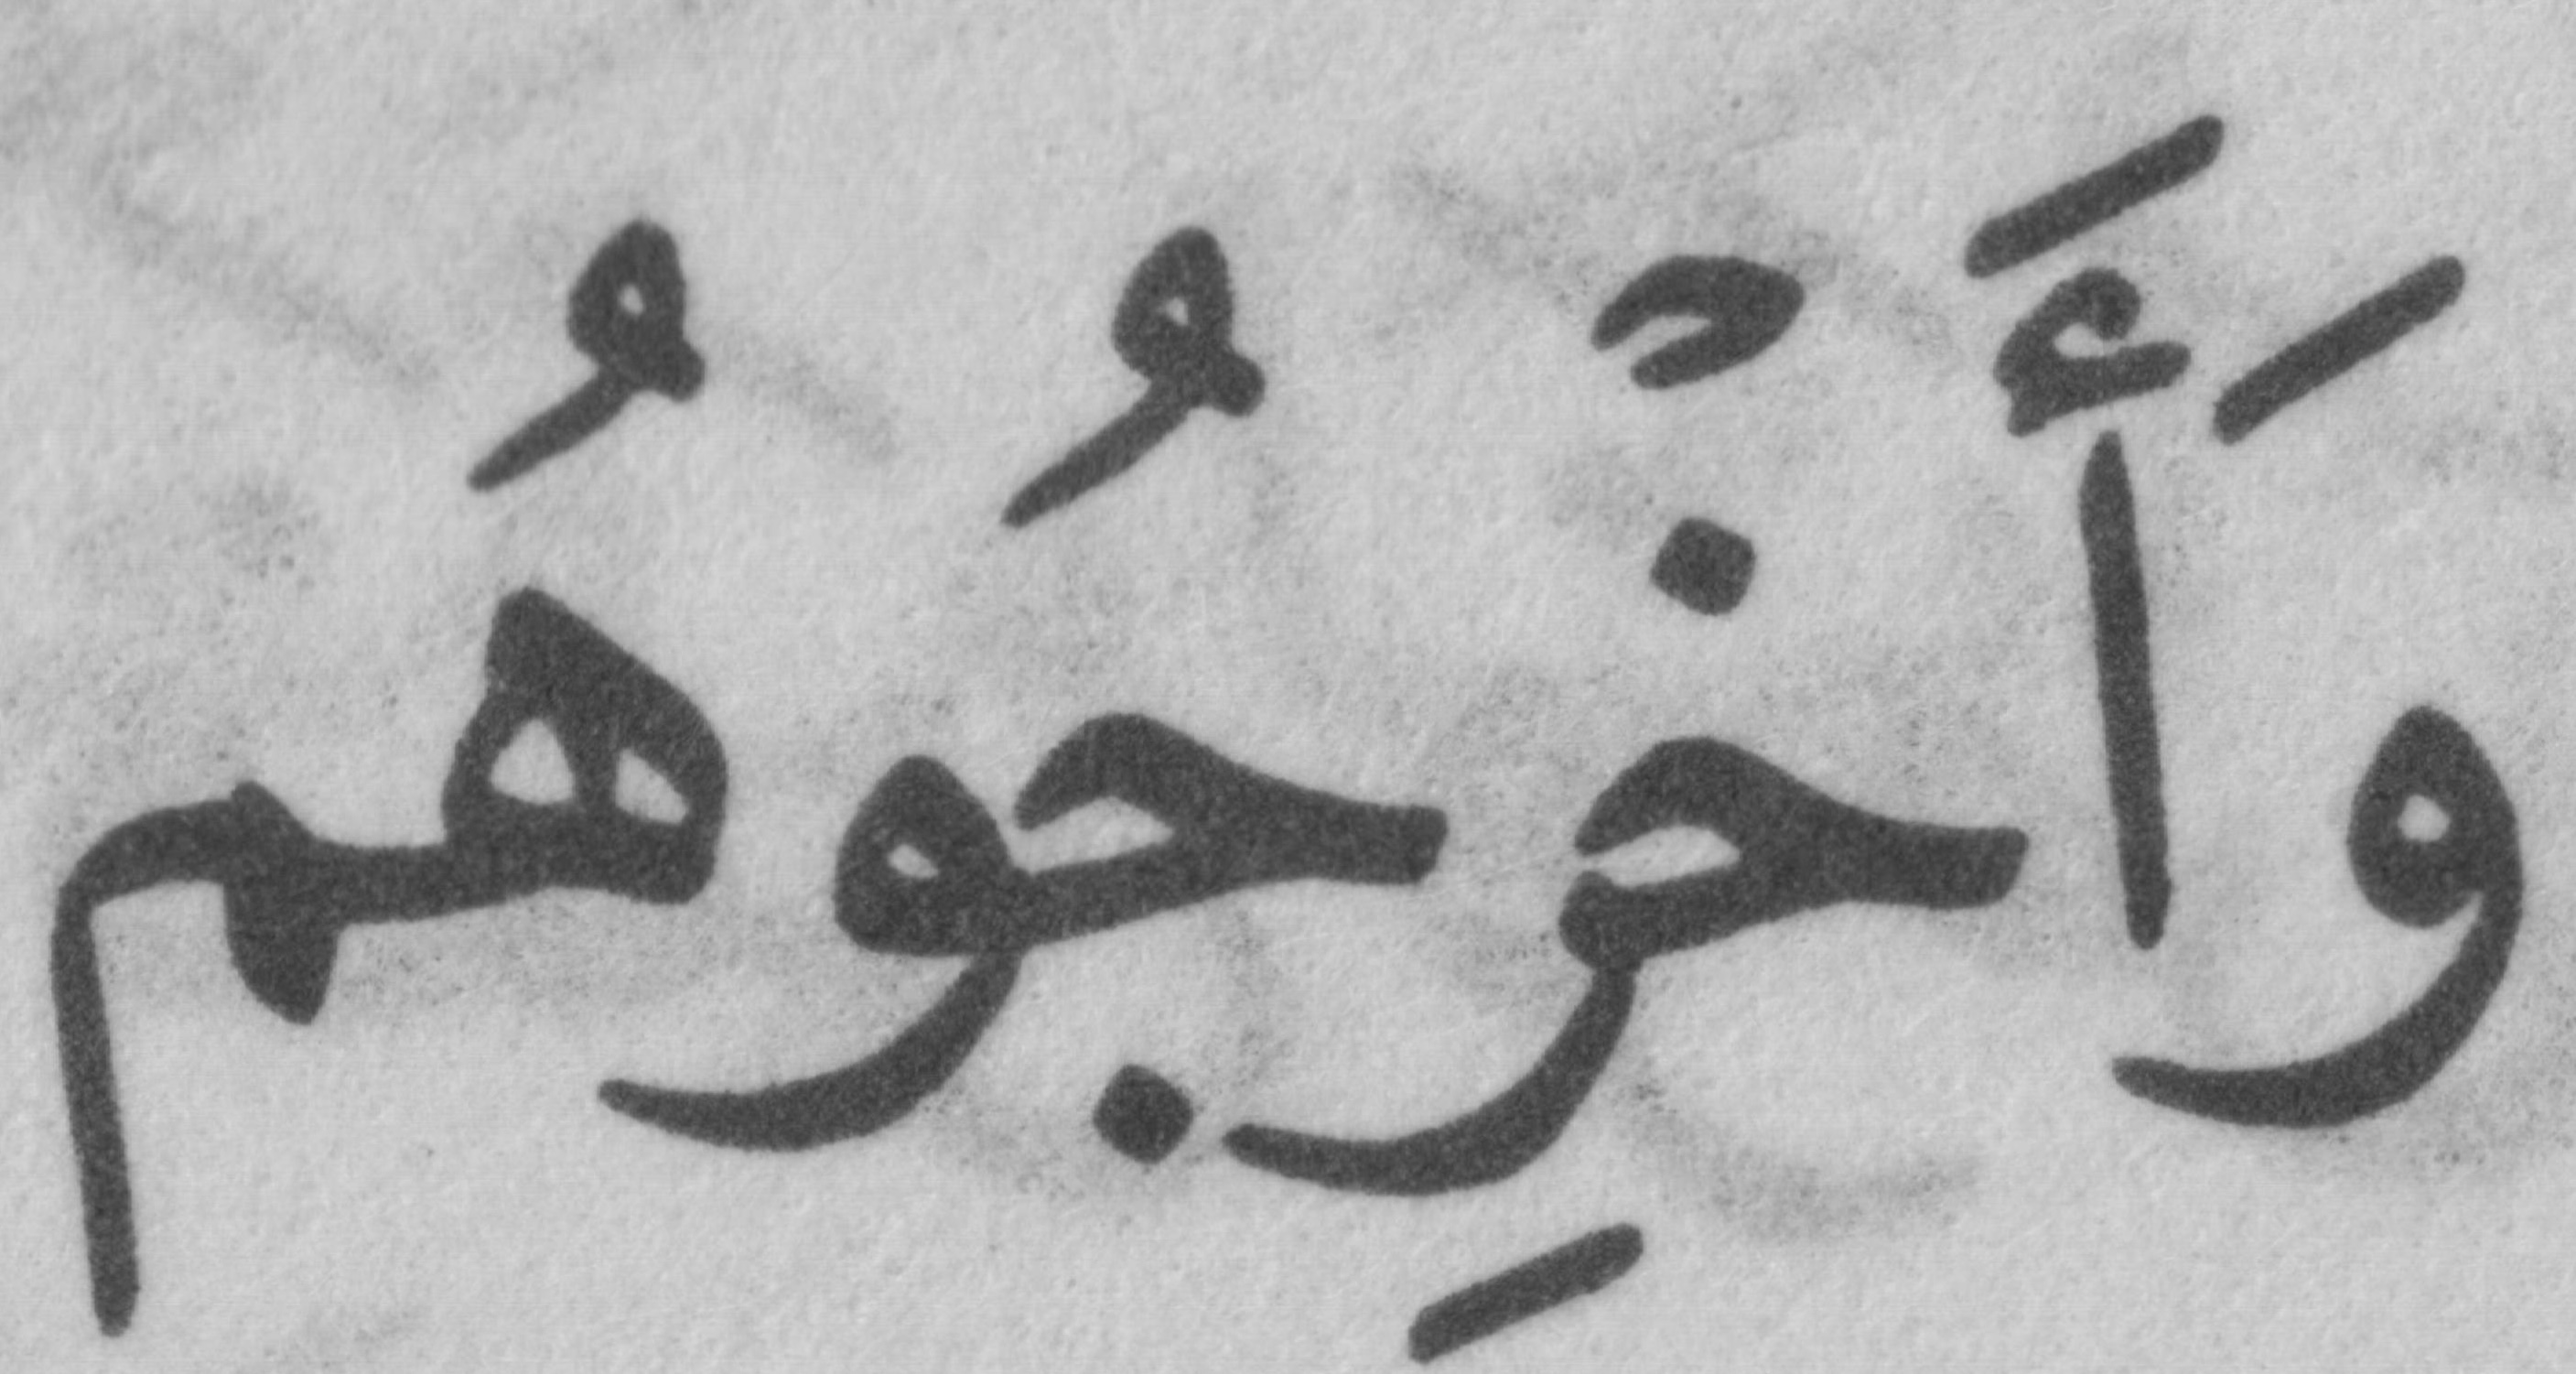 وَأَخۡرِجُوهُم